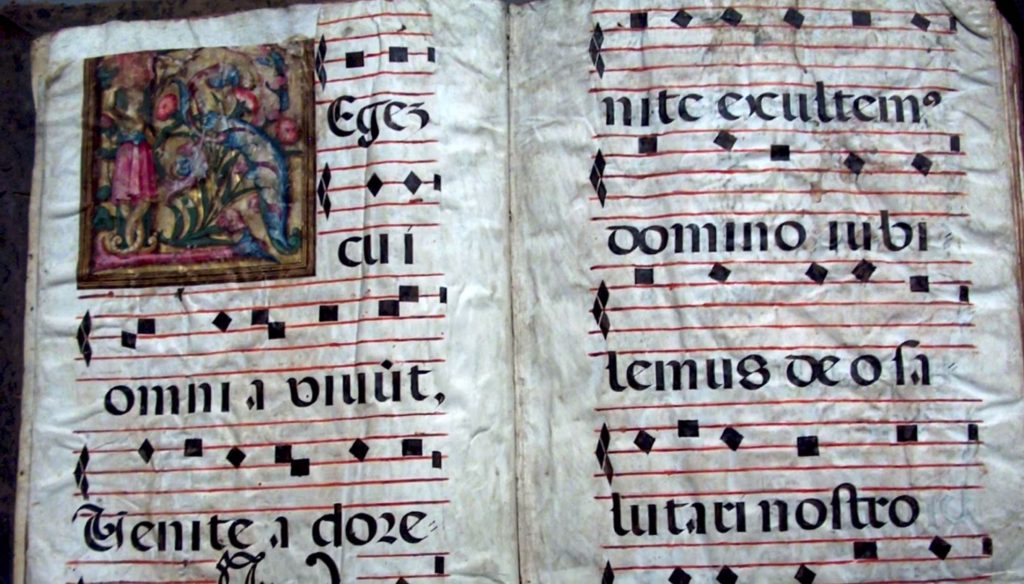 Egez
cui
omni a viuūt,
Venite a dore-
nite excultem⁹
domino iubi
lemus deo sa
lutari nostro